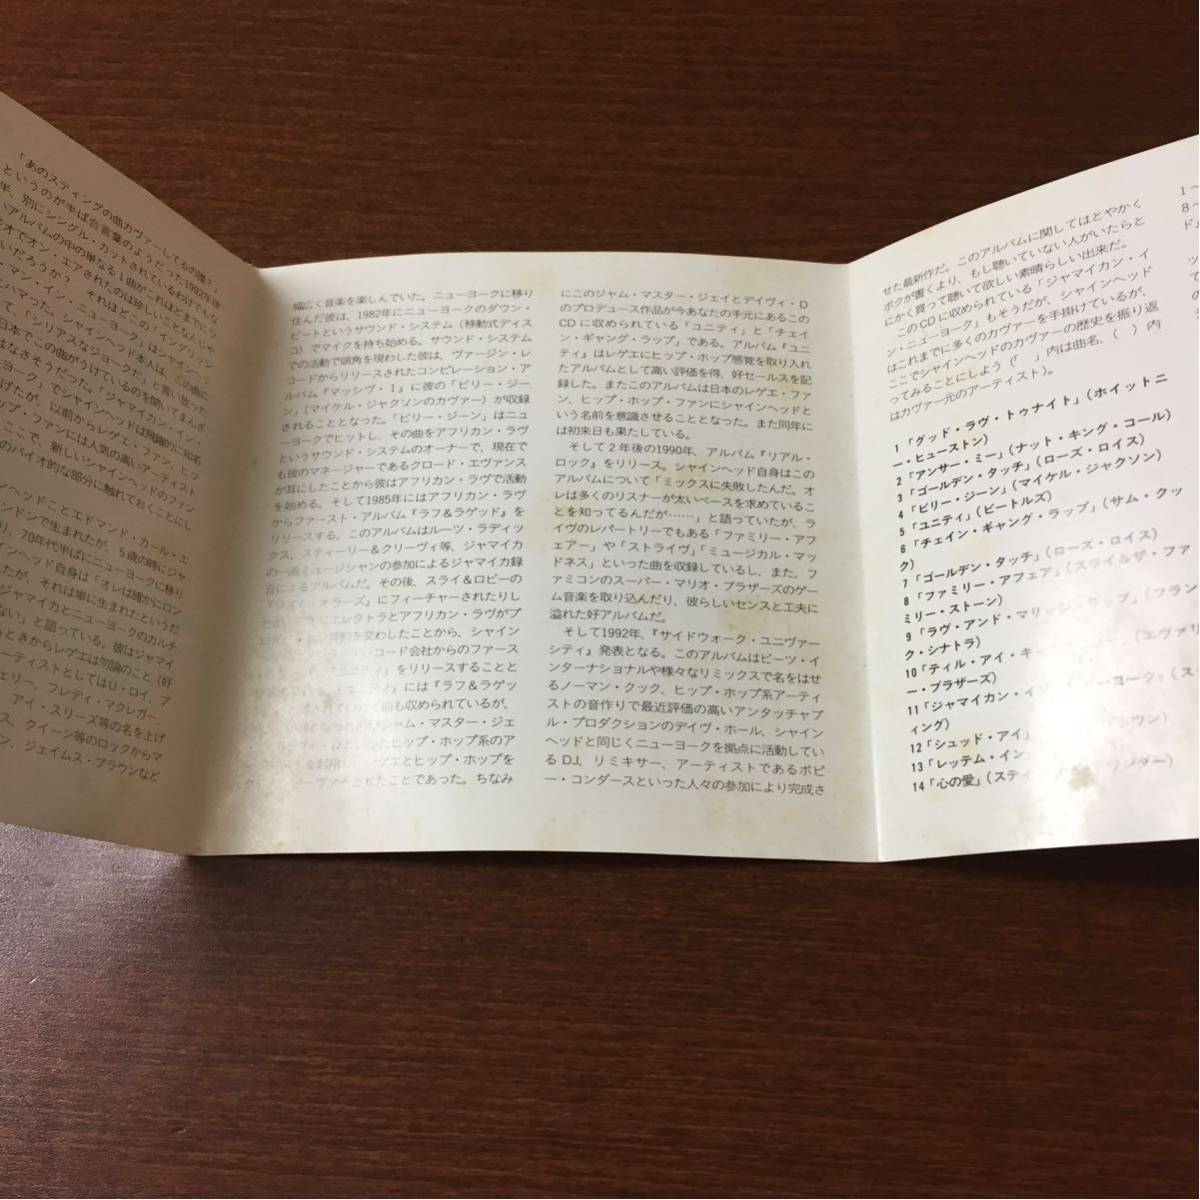 「あのスティングの曲カヴァーしてるの誰？」
というのが半ば合言葉のようだった1992年後
半、別にシングル・カットされているわけでもな
いアルバムの中の単なる1曲が、これほどまでにラ
オでオン・エアされたのは珍しいことなんじゃ
いだろうか？　それほどこの「イングリッシ
・マン・イン・ニューヨーク」はシャイン
ハマった。シャインヘッド本人は、この曲に
て、「シリアスなジョークだ」と言い放った
日本でこの曲がうけているのを聞いてまんざ
はなさそうだった。「ジャマイカン・イン・
ヨーク」でシャインヘッドは飛躍的に知名
げたが、以前からレゲエ・ファン、ヒッ
ップ・ファンには人気の高いアーティスト
ここで、新しいシャインヘッドのファン
のバイオ的な部分に触れておくことにし
ンヘッドことエドマンド・カール・エ
ンドンで生まれたが、5歳の時にジャ
り、70年代半ばにニューヨークに移り
ャインヘッド自身は「オレは確かにロン
たが、それは単に生まれたというだ
ジャマイカとニューヨークのカルチ
ない」と語っている。彼はジャマイ
ときからレゲエは勿論のこと（好
ーティストとしてはU・ロイ、ブ
ェリー、フレディ・マクレガー、
アイ・スリーズ等の名を上げ
ス、クイーン等のロックからマ
ン、ジェイムス・ブラウンなど
幅広く音楽を楽しんでいた。ニューヨークに移り
住んだ彼は、1982年にニューヨークのダウン・
ビートというサウンド・システム（移動式ディス
コ）でマイクを持ち始める。サウンド・システム
での活動で頭角を現わした彼は、ヴァージン・レ
コードからリリースされたコンピレーション・ア
ルバム『マッシヴ・1』に彼の「ビリー・ジー
ン」（マイケル・ジャクソンのカヴァー）が収録
されることとなった。「ビリー・ジーン」はニュ
ーヨークでヒットし、その曲をアフリカン・ラヴ
というサウンド・システムのオーナーで、現在で
も彼のマネージャーであるクロード・エヴァンス
が耳にしたことから彼はアフリカン・ラヴで活動
を始める。そして1985年にはアフリカン・ラヴ
からファースト・アルバム『ラフ＆ラゲッド』を
リリースする。このアルバムはルーツ・ラディッ
クス、スティーリー＆クリーヴィ等、ジャマイカ
の一流ミュージシャンの参加によるジャマイカ録
音によるアルバムだ。その後、スライ＆ロビーの
『リズム・キラーズ』にフィーチャーされたりし
にエレクトラとアフリカン・ラヴがプ
契約を交わしたことから、シャイン
レコード会社からのファース
をリリースすることと
』には『ラフ＆ラゲッ
曲も収められているが、
ジャム・マスター・ジェ
ヒップ・ホップ系のア
ゲエとヒップ・ホップを
させたことであった。ちなみ
にこのジャム・マスター・ジェイとデイヴィ・D
のプロデュース作品が今あなたの手元にあるこの
CDに収められている「ユニティ」と「チェイ
ン・ギャング・ラップ」である。アルバム『ユニ
ティ』はレゲエにヒップ・ホップ感覚を取り入れ
たアルバムとして高い評価を得、好セールスを記
録した。またこのアルバムは日本のレゲエ・ファ
ン、ヒップ・ホップ・ファンにシャインヘッドと
いう名前を意識させることとなった。また同年に
は初来日も果たしている。
そして2年後の1990年、アルバム『リアル・
ロック』をリリース。シャインヘッド自身はこの
アルバムについて「ミックスに失敗したんだ。オ
レは多くのリスナーが太いベースを求めているこ
とを知ってるんだが……」と語っていたが、ラ
イヴのレパートリーでもある「ファミリー・アフ
ェアー」や「ストライヴ」「ミュージカル・マッ
ドネス」といった曲を収録しているし、また、フ
ァミコンのスーパー・マリオ・ブラザーズのゲー
ム音楽を取り込んだり、彼らしいセンスと工夫に
溢れた好アルバムだ。
そして1992年、『サイドウォーク・ユニヴァー
シティ』発表となる。このアルバムはビーツ・イ
ンターナショナルや様々なリミックスで名をはせ
るノーマン・クック、ヒップ・ホップ系アーティ
ストの音作りで最近評価の高いアンタッチャブ
ル・プロダクションのデイヴ・ホール、シャイン
ヘッドと同じくニューヨークを拠点に活動してい
るDJ、リミキサー、アーティストであるボビ
ー・コンダースといった人々の参加により完成さ
せた最新作だ。このアルバムに関してはとやかく
ボクが書くより、もし聴いていない人がいたらと
にかく買って聴いて欲しい素晴らしい出来だ。
このCDに収められている「ジャマイカン・イ
ン・ニューヨーク」もそうだが、シャインヘッド
はこれまでに多くのカヴァーを手掛けているが、
ここでシャインヘッドのカヴァーの歴史を振り返
ってみることにしよう（「　」内は曲名、（　）内
はカヴァー元のアーティスト）。
1「グッド・ラヴ・トゥナイト」（ホイットニ
ー・ヒューストン）
2「アンサー・ミー」（ナット・キング・コール）
3「ゴールデン・タッチ」（ローズ・ロイス）
4「ビリー・ジーン」（マイケル・ジャクソン）
5「ユニティ」（ビートルズ）
6「チェイン・ギャング・ラップ」（サム・クッ
ク）
7「ゴールデン・タッチ」（ローズ・ロイス）
8「ファミリー・アフェア」（スライ＆ザ・ファ
ミリー・ストーン）
9「ラヴ・アンド・マリッジ・ラップ」（フラン
ク・シナトラ）
10「ティル・アイ・キッ （エヴァリ
ー・ブラザーズ）
11「ジャマイカン・イン・ニューヨーク」（ステ
ィング）
12「シュッド・アイ ラウン）
13「レッテム・イン
14「心の愛」（スティーヴィー・ワンダー）
1～
8～
ド』
ッ